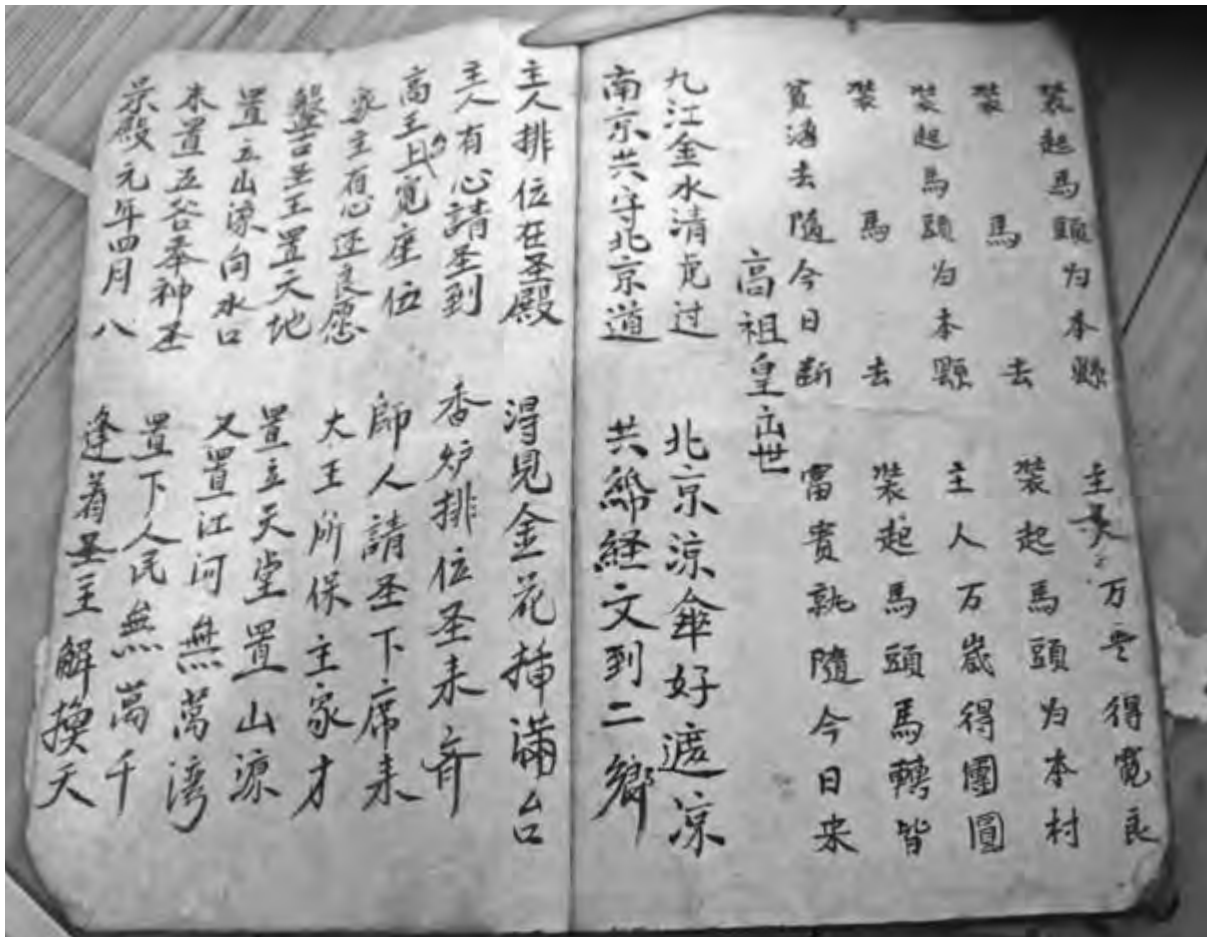 裝起馬頭为本縣 主 万 得寬良
裝 馬 去 裝起馬頭为本村
裝起馬頭为本縣 主人万歲得團圓
裝 馬 去 裝起馬頭馬轉皆
去隨今日断 富貴就隨今日来
高祖皇出世
九江金水清克过 北京涼傘好遮凉
南京共守北京道 共綿経文到二鄉
主人排位在圣殿 淂見金花揷滿台
主人有心請圣到 香炉排位圣来齐
高王上寬座位 師人請圣下席来
家主有心还良愿 大王所保主家才
盤古圣王置天地 置立天堂置山源
置立山源向水口 又置江河無萬湾
未置五谷奉神圣 置下人民無萬千
景殿元年四月八 逢着圣主解換天